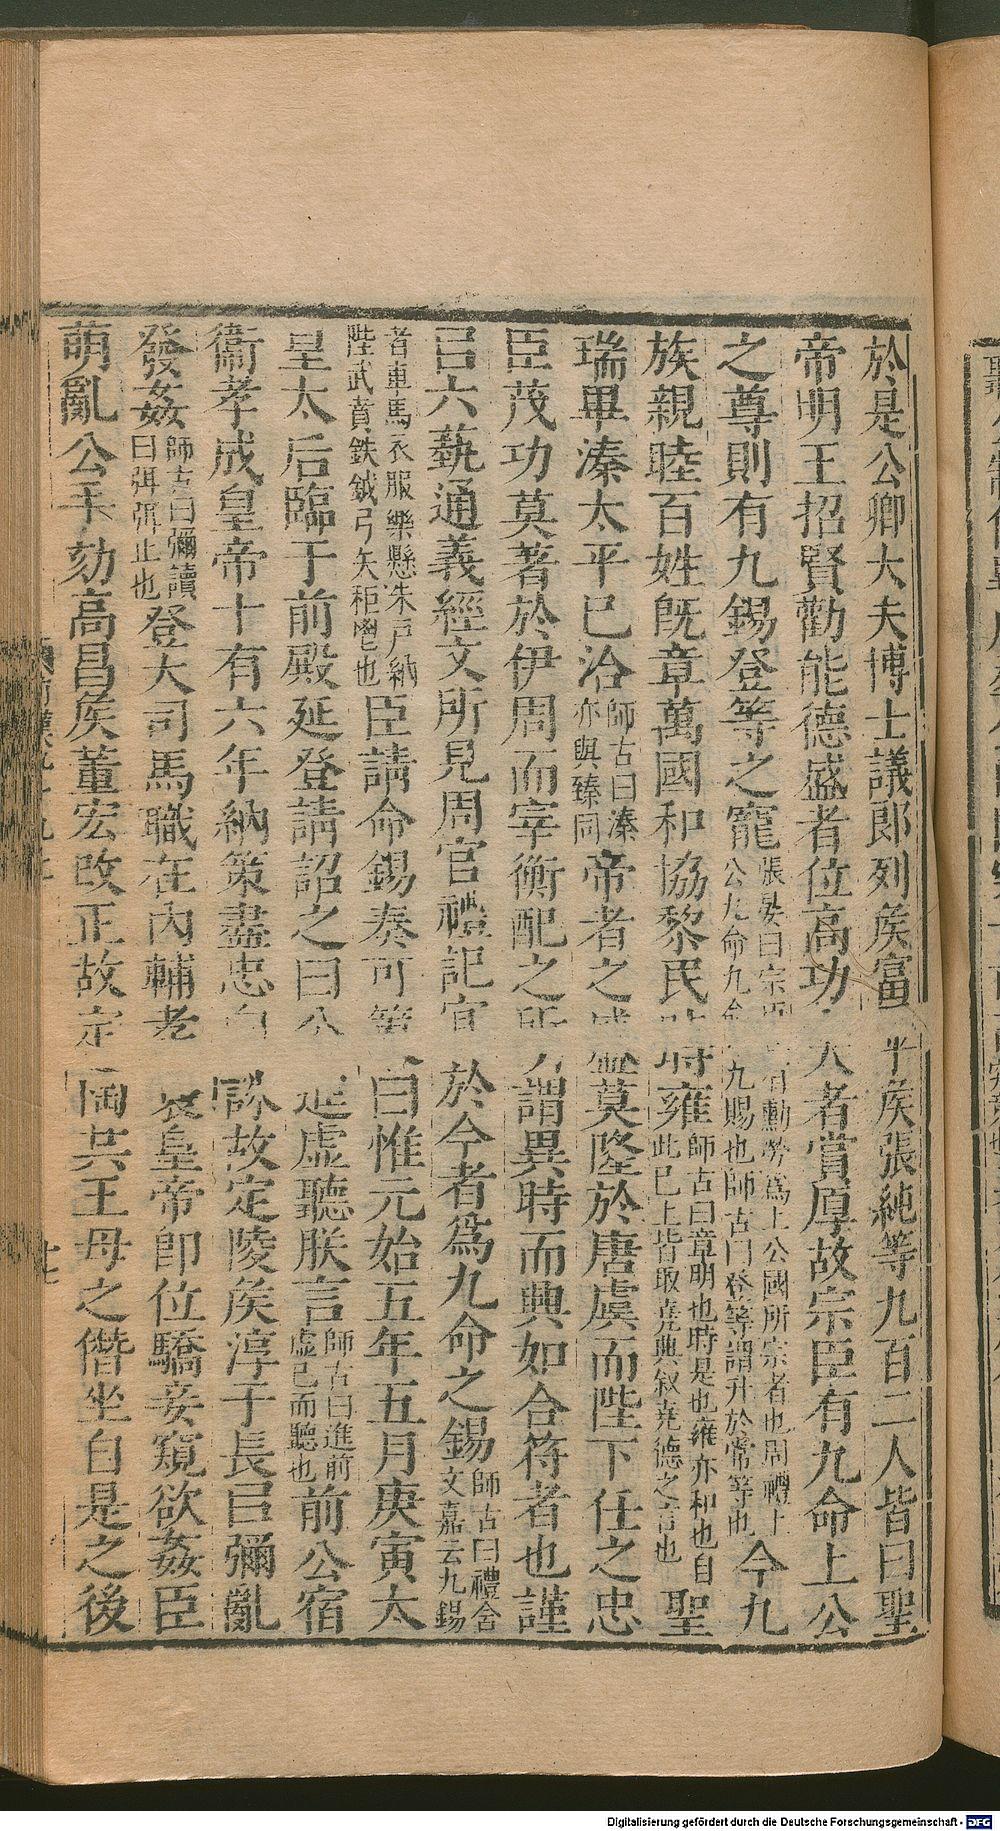 於是公卿大夫博士議郎列矦富平矦張純等九百二人皆曰聖
帝明王招賢勸能德盛者位高功大者賞厚故宗臣有九命上公
之尊則有九錫登等之寵張晏曰宗臣有勳勞爲上公國所宗者也周禮上公九命九命九賜也師古曰登等謂升於常等也今九
族親睦百姓旣章萬國和協黎民時雍師古曰章明也時是也雍亦和也自此已上皆取堯典叙堯德之言也聖
瑞畢溱太平已洽師古曰溱亦與臻同帝者之盛莫隆於唐虞而陛下任之忠
臣茂功莫著於伊周而宰衡配之所謂異時而興如合符者也謹
㠯六藝通義經文所見周官禮記宜於今者爲九命之錫師古曰禮含文嘉云九錫
者車馬衣服樂懸朱戸納陛武賁鈇鉞弓矢秬鬯也臣請命錫奏可策曰惟元始五年五月庚寅太
皇太后臨于前殿延登請詔之曰公進虛聽朕言師古曰進前虛己而聽也前公宿
衞孝成皇帝十有六年納策盡忠白誅故定陵矦淳于長㠯彌亂
發姦師古曰彌讀曰弭弭止也登大司馬職在內輔孝哀皇帝卽位驕妾窺欲姦臣
萌亂公手劾高昌矦董宏改正故定陶共王母之僭坐自是之後
Digitalisierung gefördert durch die Deutsche Forschungsgemeinschaft - DFG